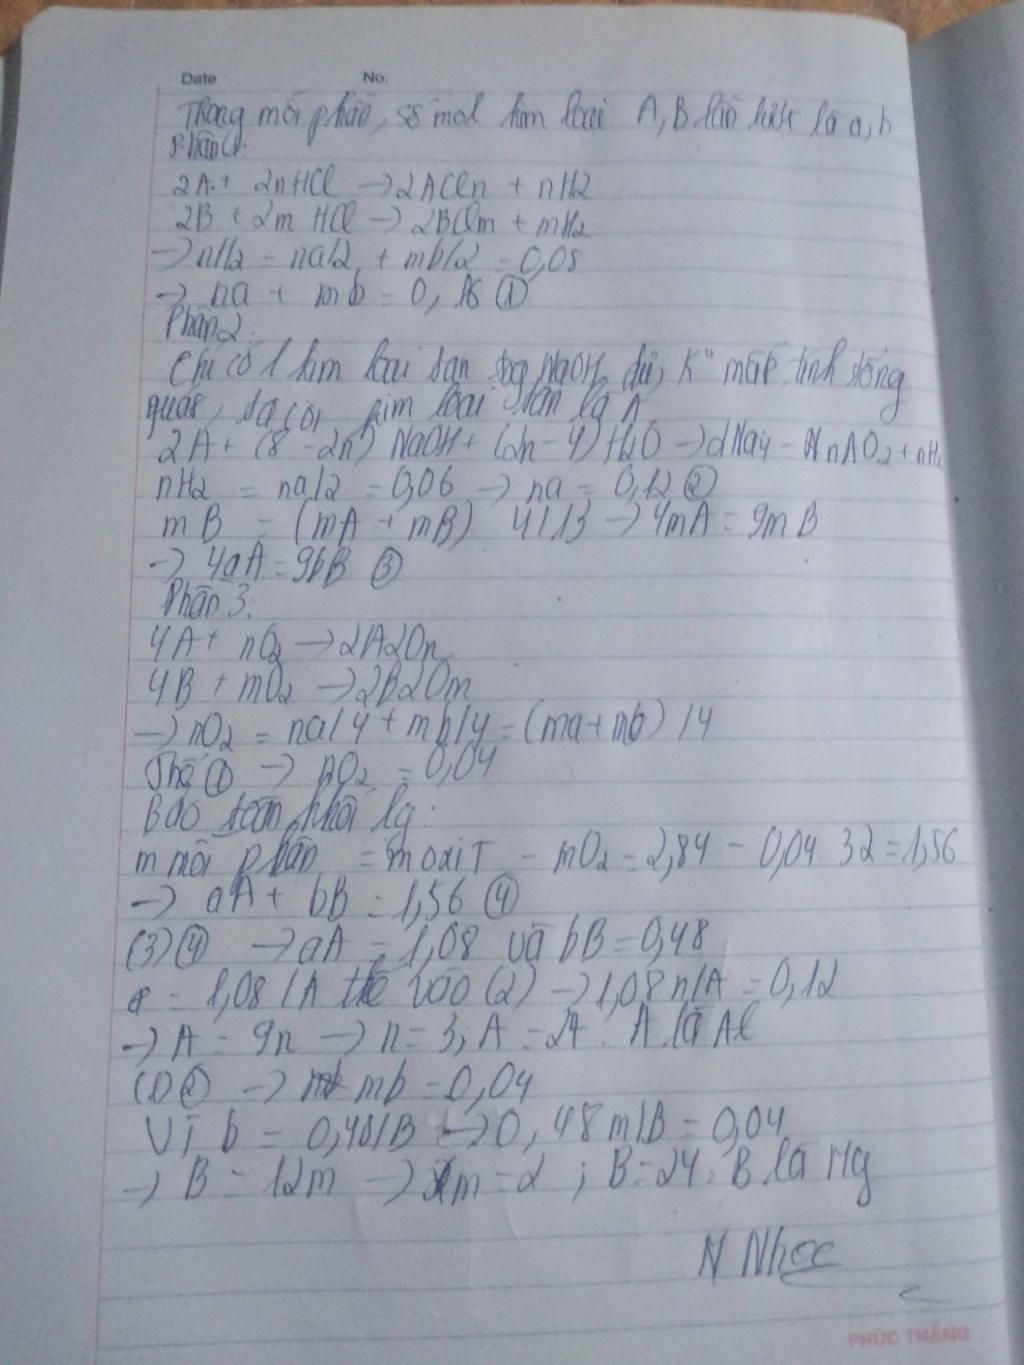 Date No.
Trong mỗi phần, số mol kim loại A, B lần lượt là a, b
Phần 1:
2A + 2nHCl → 2ACln + nH2
2B + 2m HCl → 2BClm + mH2
→ nH2 = na/2 + mb/2 = 0,08
→ na + mb = 0,16 (1)
Phần 2:
Chỉ có 1 kim loại tan NaOH dư, K° mất tính tổng
quát, ta coi kim loại tan là A
2A + (8 - 2n) NaOH + (2n - 4) H2O → 2Na4 - nAO2 + nH2
nH2 = na/2 = 0,06 → na = 0,12 (2)
mB = (mA + mB) 4/13 → 4mA = 9mB
→ 4aA = 9bB (3)
Phần 3:
4A + nO2 → 2A2On
4B + mO2 → 2B2Om
→ nO2 = na/4 + mb/4 = (ma + mb) /4
Thế (1) → nO2 = 0,04
Bảo toàn khối lg:
m mỗi phần = m oxiT - mO2 = 2,84 - 0,04 . 32 = 1,56
→ aA + bB = 1,56 (4)
(3) (4) → aA = 1,08 và bB = 0,48
a = 1,08 /A thế vào (2) → 1,08n/A = 0,12
→ A = 9n → n = 3, A = 27 : A là Al
(1) (2) → mb = 0,04
Vì b = 0,48/B → 0,48m/B = 0,04
→ B = 12m → m = 2 ; B = 24 : B là Mg
N Nhọc
PHÚC THẮNG